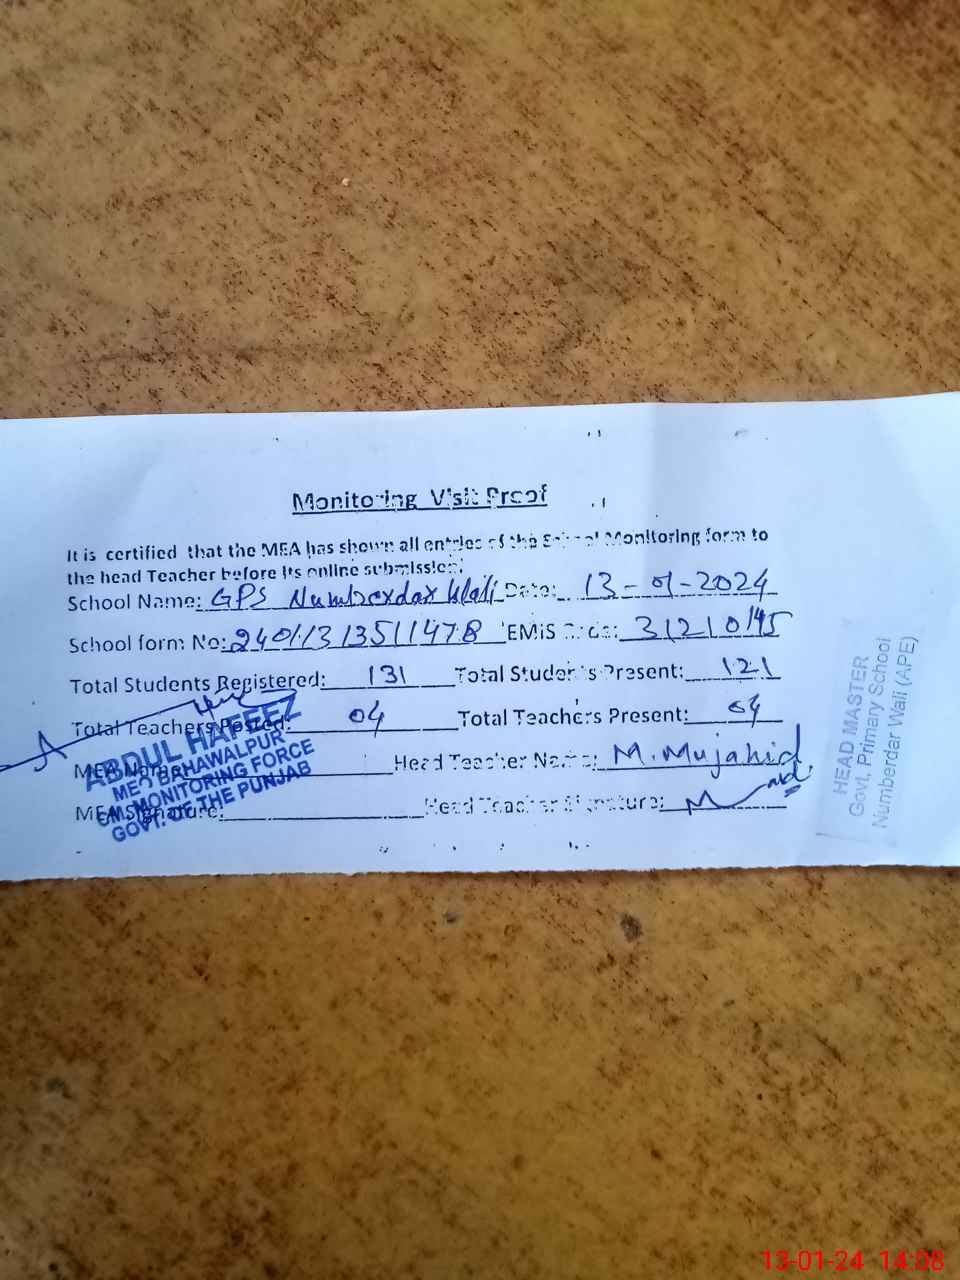 Monitoring Visit Proof
It is certified that the MEA has shown all entries of the School Monitoring form to
the head Teacher before its online submission.
School Name: GPS Numberdar Wali Date: 13-01-2024
School form No: 24011313511478 EMIS Code: 31210145
Total Students Registered: 131 Total Students Present: 121
Total Teachers Posted: 04 Total Teachers Present: 04
MEA Name: Head Teacher Name: M. Mujahid
MEA Signature: Head Teacher Signature:
ABDUL HAFEEZ
BAHAWALPUR
MONITORING FORCE
GOVT. OF THE PUNJAB
HEAD MASTER
Govt. Primary School
Numberdar Wali (APE)
13-01-24 14:08